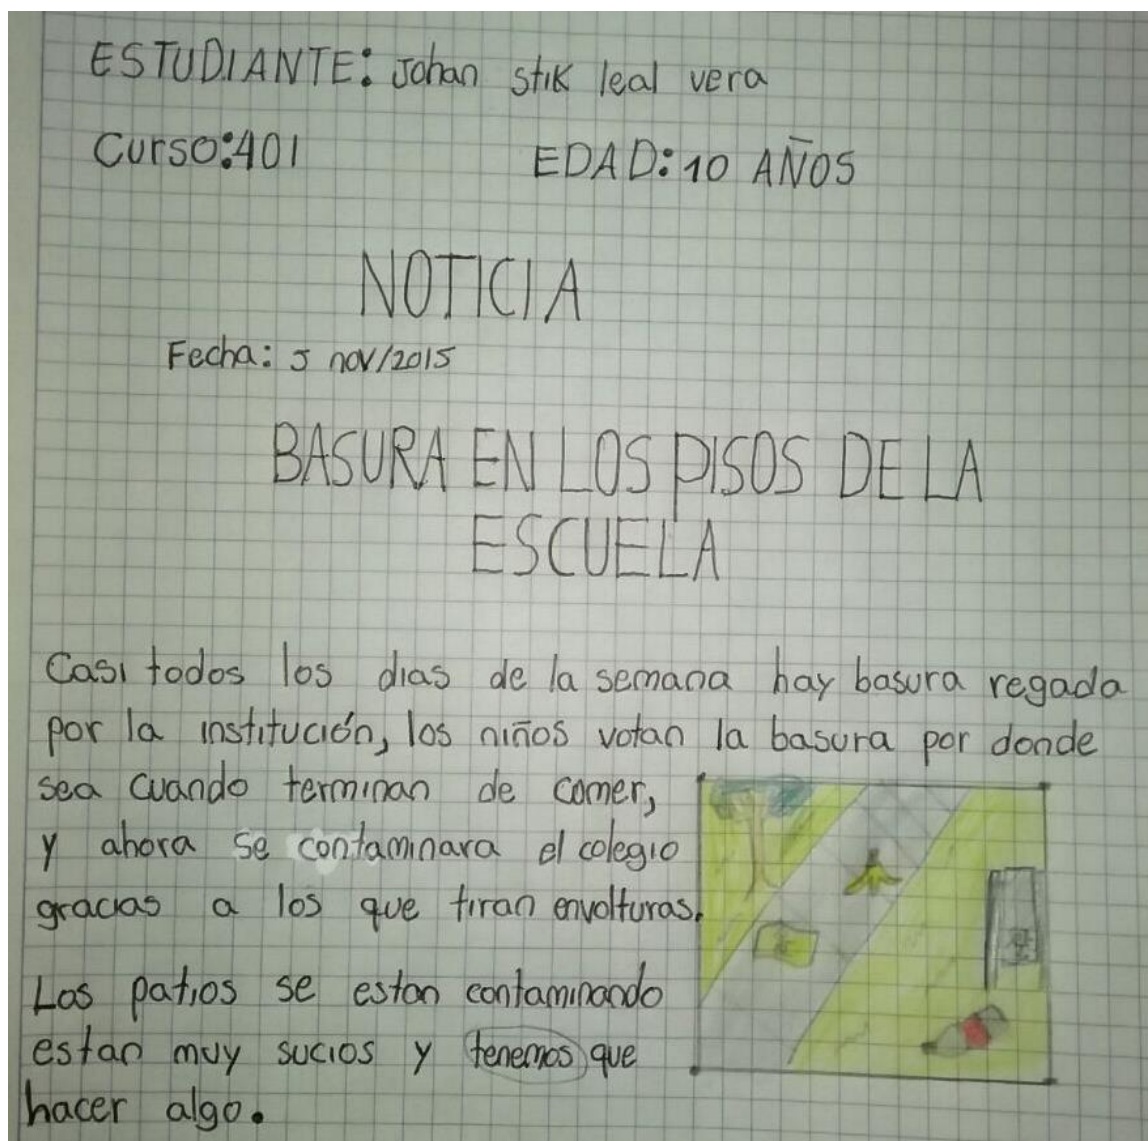 ESTUDIANTE: Johan stik leal vera
Curso:401 EDAD: 10 AÑOS
NOTICIA
Fecha: 5 nov/2015
BASURA EN LOS PISOS DE LA
ESCUELA
Casi todos los dias de la semana hay basura regada
por la institución, los niños votan la basura por donde
sea cuando terminan de comer,
y ahora se contaminara el colegio
gracias a los que tiran envolturas.
Los patios se estan contaminando
estan muy sucios y tenemos que
hacer algo.